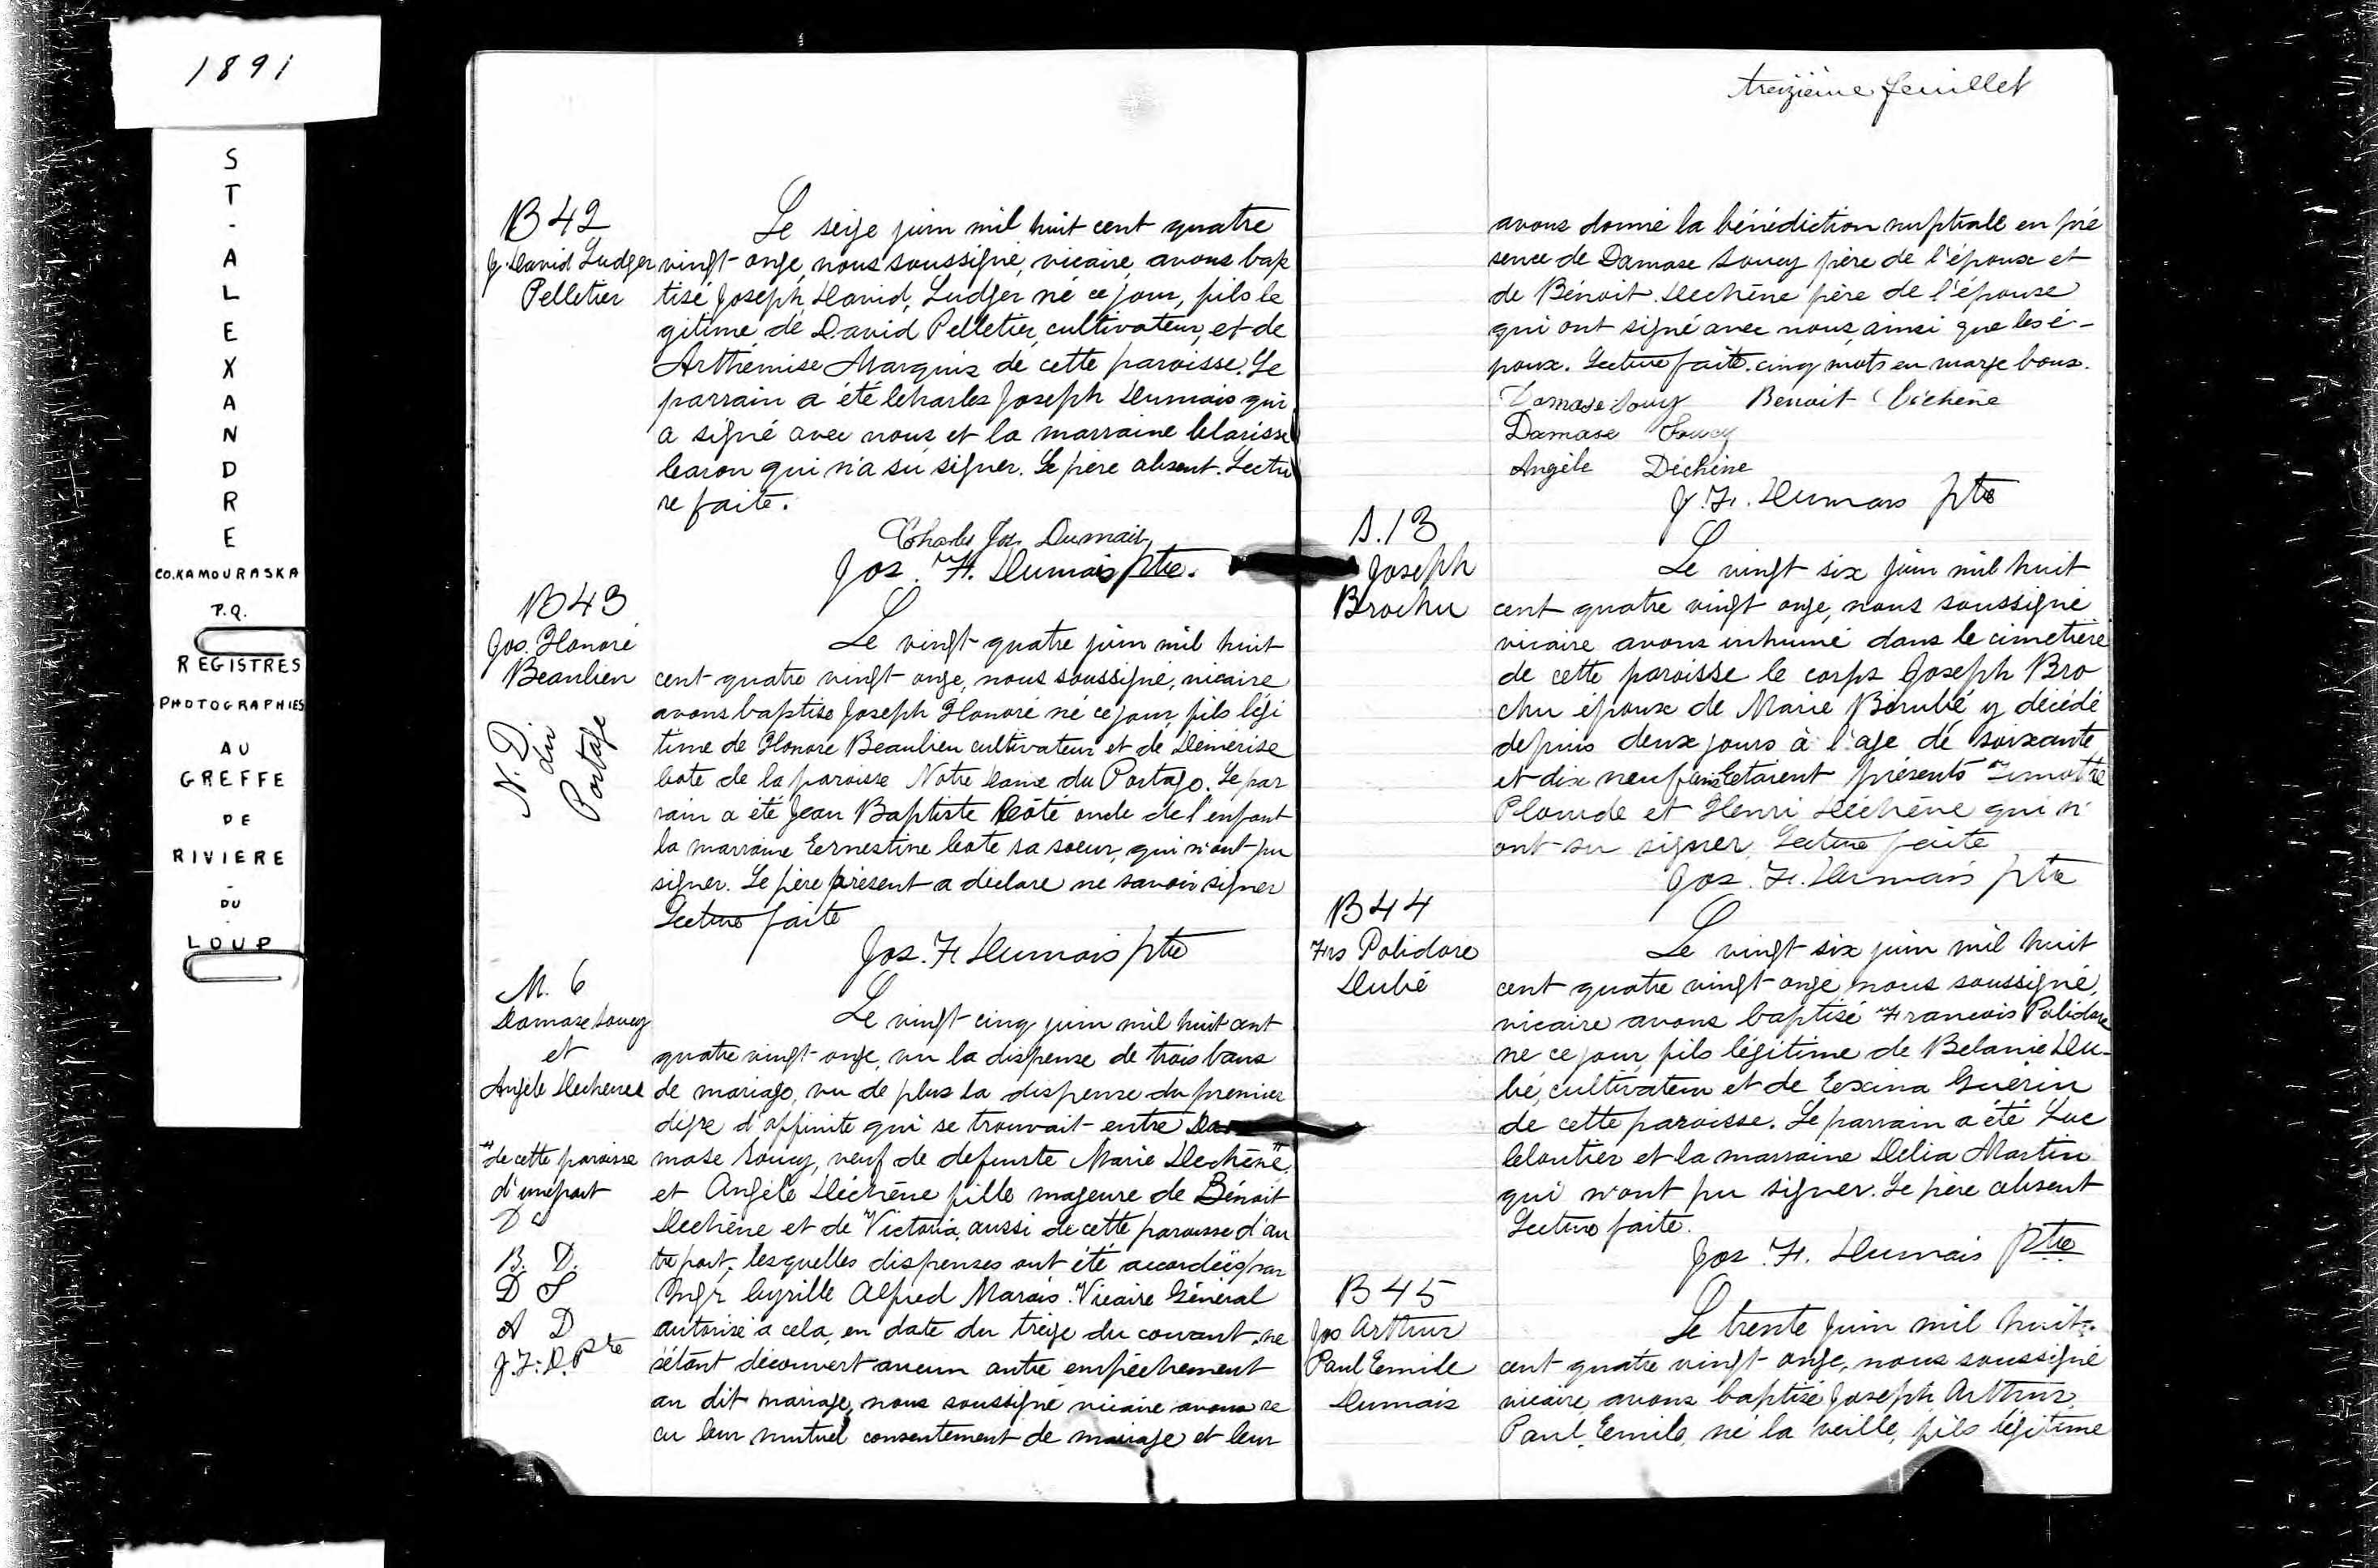 1891
ST-ALEXANDRE
CO.KAMOURASKA
P.Q.
REGISTRES
PHOTOGRAPHIES
AU
GREFFE
DE
RIVIERE
-
DU
-
LOUP
B 42
J. David Ludger
Pelletier
Le seize juin mil huit cent quatre
vingt-onze, nous soussigné, vicaire, avons bap
tisé Joseph, David, Ludger né ce jour, fils lé
gitime de David Pelletier, cultivateur, et de
Arthémise Marquis de cette paroisse. Le
parrain a été Charles Joseph Dumais qui
a signé avec nous et la marraine Clarisse
Caron qui n'a su signer. Le père absent. Lectu
re faite.
Charles Jos. Dumais
Jos. F. Dumais ptre.
B 43
Jos. Honoré
Beaulieu
N. D.
du
Portage
Le vingt-quatre juin mil huit
cent quatre vingt-onze, nous soussigné, vicaire
avons baptisé Joseph Honoré né ce jour, fils légi
time de Honoré Beaulieu cultivateur et de Démérise
Coté de la paroisse Notre Dame du Portage. Le par
rain a été Jean Baptiste Côté oncle de l'enfant
la marraine Ernestine Coté sa soeur, qui n'ont pu
signer. Le père présent a déclaré ne savoir signer
Lecture faite
Jos. F. Dumais ptre
M. 6
Damase Soucy
et
Angèle Dechene
"de cette paroisse
d'une part
B. D.
D S
A D
J. F. D. Ptre
Le vingt-cinq juin mil huit cent
quatre vingt-onze, vu la dispense de trois bans
de mariage, vu de plus la dispense du premier
degré d'affinité qui se trouvait entre Da
mase Soucy, veuf de defunte Marie Dechène",
et Angèle Déchène fille majeure de Bénoit
Dechène et de Victoria, aussi de cette paroisse d'au
tre part, lesquelles dispenses ont été accordées par
Mgr Cyrille Alfred Marois Vicaire Général
autorisé a cela, en date du treize du courant, ne
s'étant découvert aucun autre empêchement
au dit mariage, nous soussigné vicaire avons re
cu leur mutuel consentement de mariage et leur
treizième feuillet
avons donné la bénédiction nuptiale en pré
sence de Damase Soucy père de l'époux et
de Bénoit Dechène père de l'épouse
qui ont signé avec nous, ainsi que les é-
poux. Lecture faite. cinq mots en marge bons.
Damase Soucy Benoit Dichène
Damase Soucy
Angèle Déchène
J. F. Dumais ptre
S. 13
Joseph
Brochu
Le vingt six juin mil huit
cent quatre vingt onze, nous soussigné
vicaire avons inhumé dans le cimetière
de cette paroisse le corps Joseph Bro
chu époux de Marie Bérubé y décédé
depuis deux jours à l'age de soixante
et dix neuf ans Etaient présents Timothé
Plourde et Henri Déchène qui n'
ont su signer. Lecture faite
Jos. F. Dumais ptre
B 44
Frs Polidore
Dubé
Le vingt-six juin mil huit
cent quatre vingt-onze nous soussigné,
vicaire avons baptisé Francois Polidore
né ce jour, fils légitime de Belanie Du-
bé, cultivateur et de Exina Guérin
de cette paroisse. Le parrain a été Luc
Cloutier et la marraine Delia Martin
qui n'ont pu signer. Le père absent
Lecture faite.
Jos. F. Dumais Ptre
B 45
Jos Arthur
Paul Emile
Dumais
Le trente juin mil huit-
cent quatre vingt-onze, nous soussigné
vicaire avons baptisé Joseph Arthur,
Paul, Emile, né la veille, fils légitime